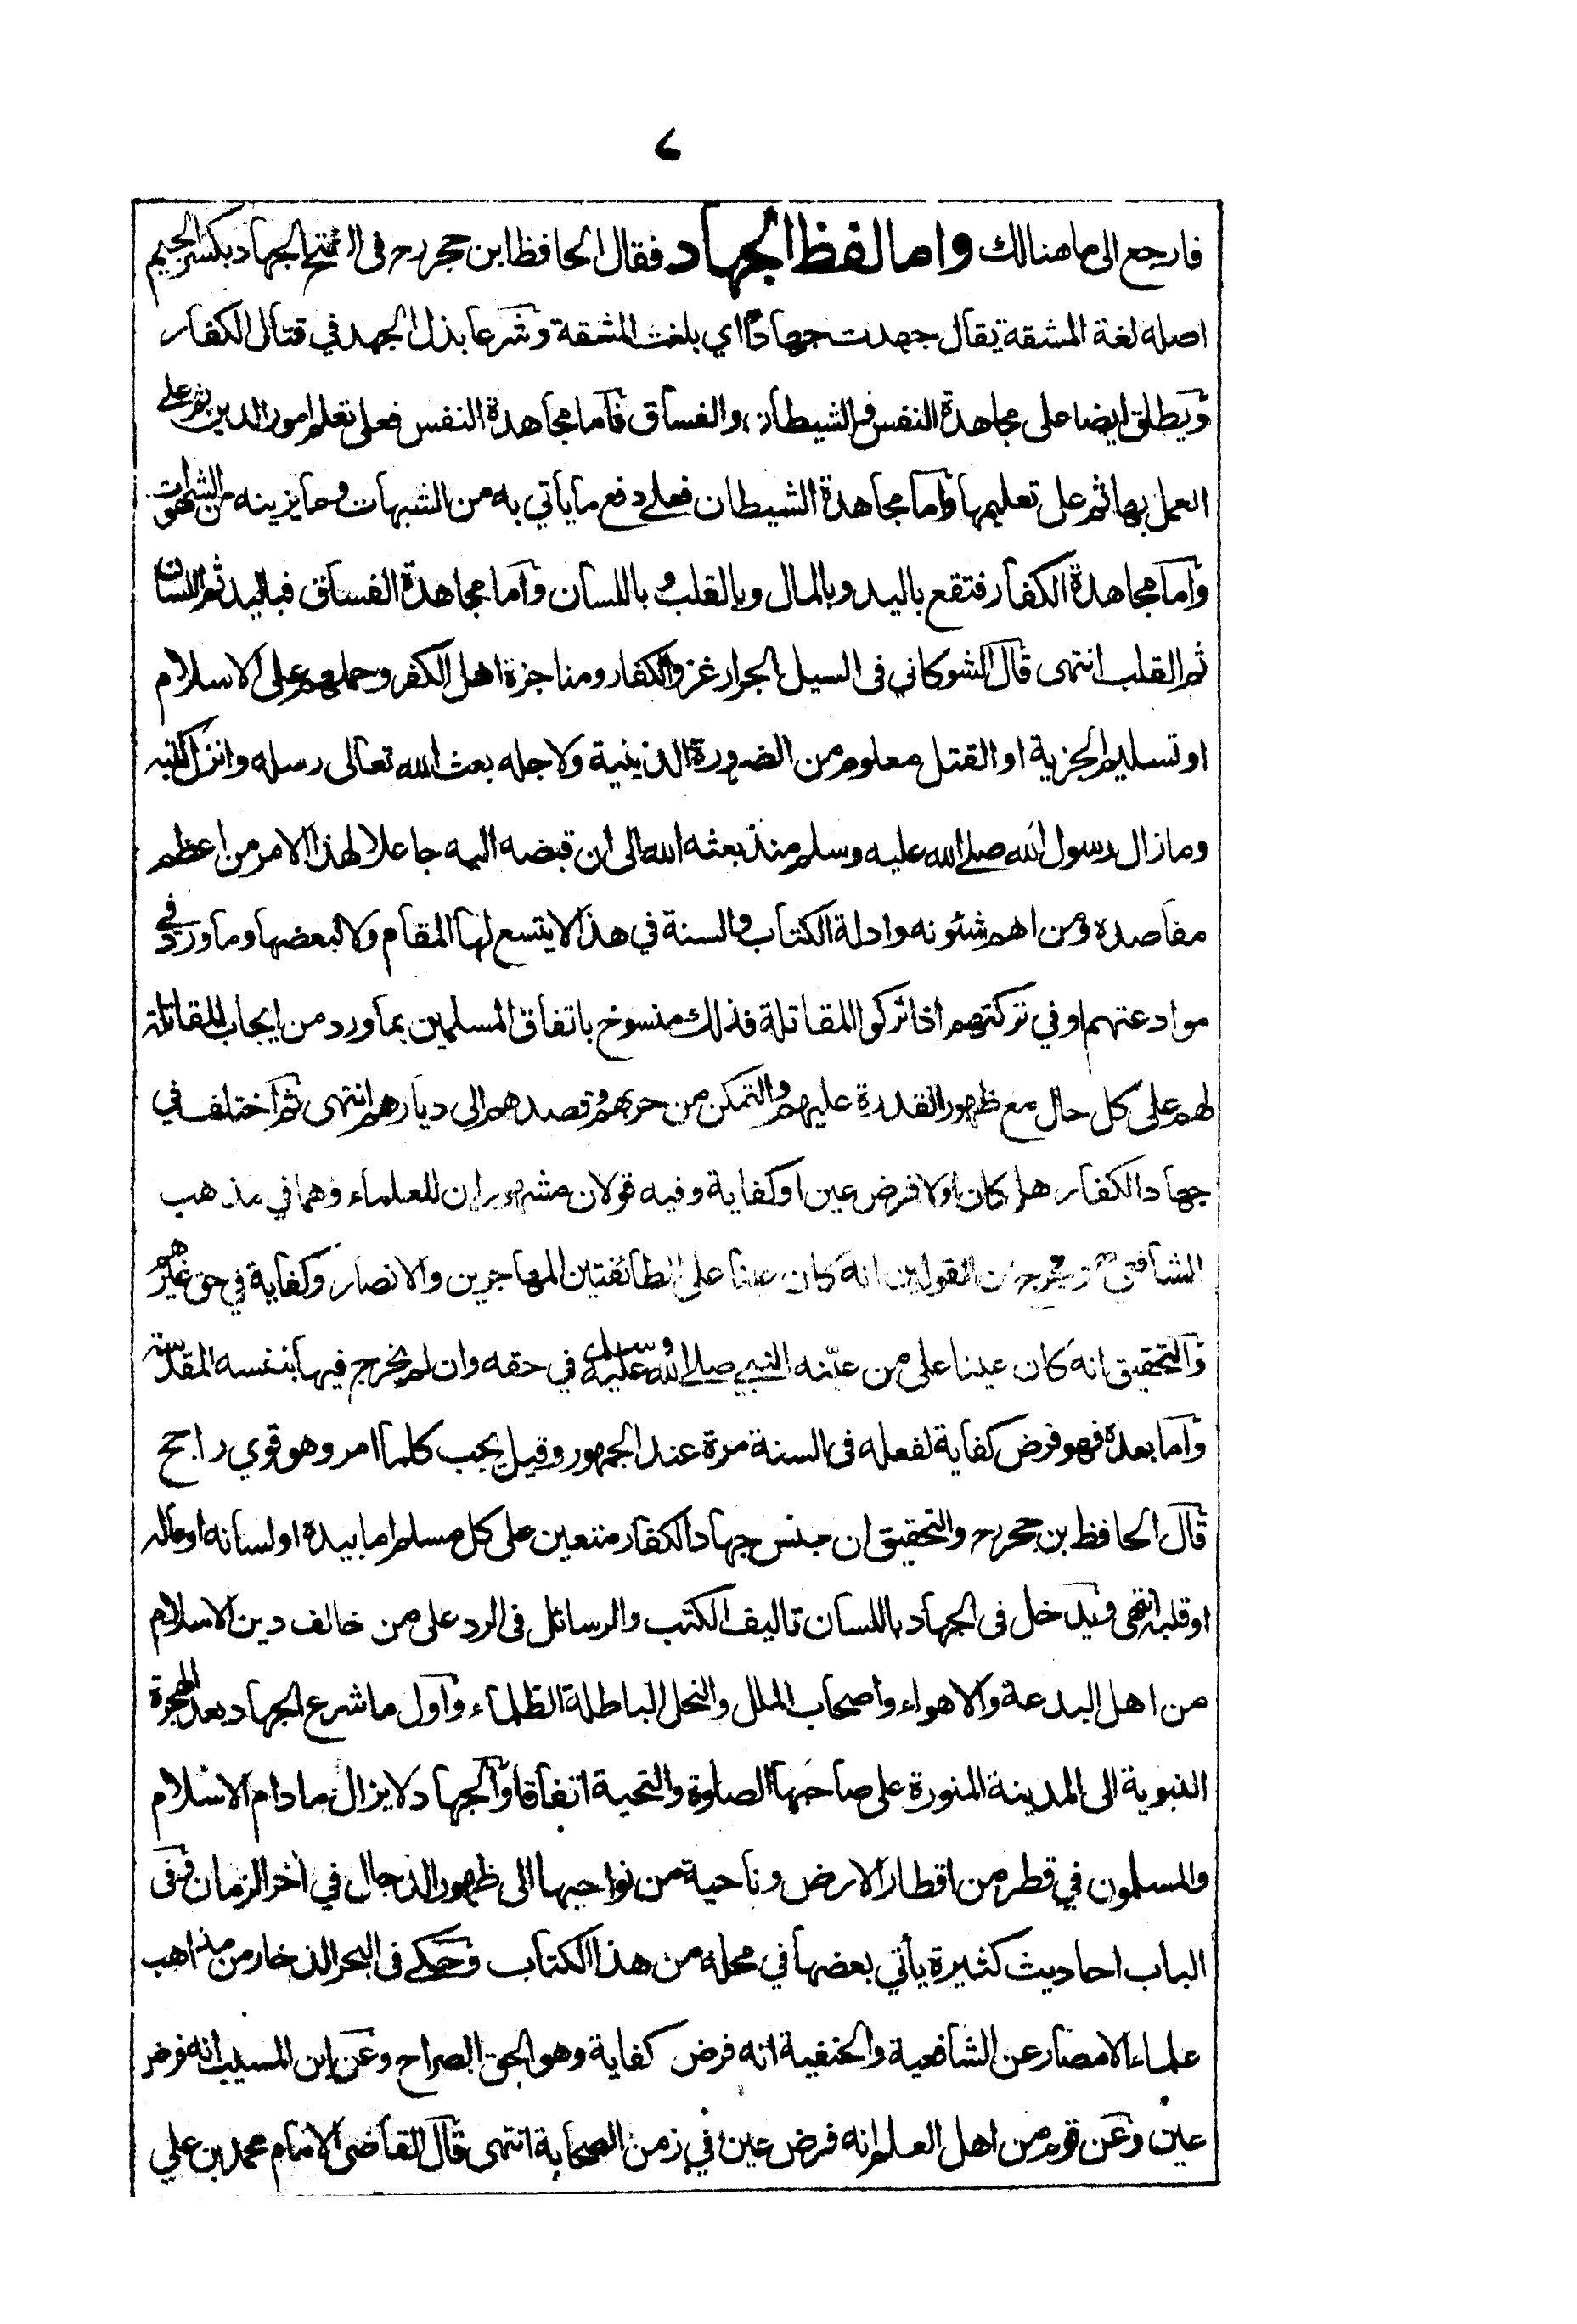 ٤
فارجع الى ما هنالك واما لفظ الجهاد فقال الحافظ ابن حجر رح فى الفتح الجهاد بكسر الجيم
اصله لغة المشقة يقال جهدت جهادًا اي بلغت المشقة وشرعا بذل الجهد في قتال الكفار
ويطلق ايضا على مجاهدة النفس والشيطان والفساق فاما مجاهدة النفس فعلى تعلم امور الدين ثم على
العمل بها ثم على تعليمها واما مجاهدة الشيطان فعلى دفع ما يأتي به من الشبهات وما يزينه من الشهوات
واما مجاهدة الكفار فتقع باليد وبالمال وبالقلب وباللسان واما مجاهدة الفساق فباليد ثم اللسان
ثم القلب انتهى قال الشوكاني فى السيل الجرار غزو الكفار ومناجزة اهل الكفر وحملهم على الاسلام
او تسليم الجزية او القتل معلوم من الضرورة الدينية ولاجله بعث الله تعالى رسله وانزل كتبه
وما زال رسول الله صلى الله عليه وسلم منذ بعثه الله الى ان قبضه اليه جاعلا لهذا الامر من اعظم
مقاصده ومن اهم شئونه وادلة الكتاب والسنة في هذا لا يتسع لها المقام ولا لبعضها وما ورد في
موادعتهم او في تركتهم اذا تركوا المقاتلة فذلك منسوخ باتفاق المسلمين بما ورد من ايجاب المقاتلة
لهم على كل حال مع ظهور القدرة عليهم والتمكن من حربهم وقصدهم الى ديارهم انتهى ثم اختلف في
جهاد الكفار هل كان اولا فرض عين او كفاية وفيه قولان مشهوران للعلماء وهما في مذهب
الشافعي القولين انه كان عينا على الطائفتين المهاجرين والانصار وكفاية في حق غيرهم
والتحقيق انه كان عينا على من عيّنه النبي صلى الله عليه وسلم في حقه وان لم يخرج فيها بنفسه المقدسة
واما بعده فهو فرض كفاية لفعله فى السنة مرة عند الجمهور وقيل يجب كلما امر وهو قوي راجح
قال الحافظ بن حجر رح والتحقيق ان جنس جهاد الكفار متعين على كل مسلم اما بيده او لسانه او ماله
او قلبه انتهى ويدخل فى الجهاد باللسان تاليف الكتب والرسائل فى الرد على من خالف دين الاسلام
من اهل البدعة والاهواء واصحاب الملل والنحل الباطلة الظلماء واول ما شرع الجهاد بعد الهجرة
النبوية الى المدينة المنورة على صاحبها الصلوة والتحية اتفاقا والجهاد لا يزال ما دام الاسلام
والمسلمون في قطر من اقطار الارض وناحية من نواحيها الى ظهور الدجال في اخر الزمان وفى
الباب احاديث كثيرة يأتي بعضها في محله من هذا الكتاب وحكي فى البحر الذخار من مذاهب
علماء الامصار عن الشافعية والحنفية انه فرض كفاية وهو الحق الصراح وعن ابن المسيب انه فرض
عين وعن قوم من اهل العلم انه فرض عين في زمن الصحابة انتهى قال القاضى الامام محمد بن علي